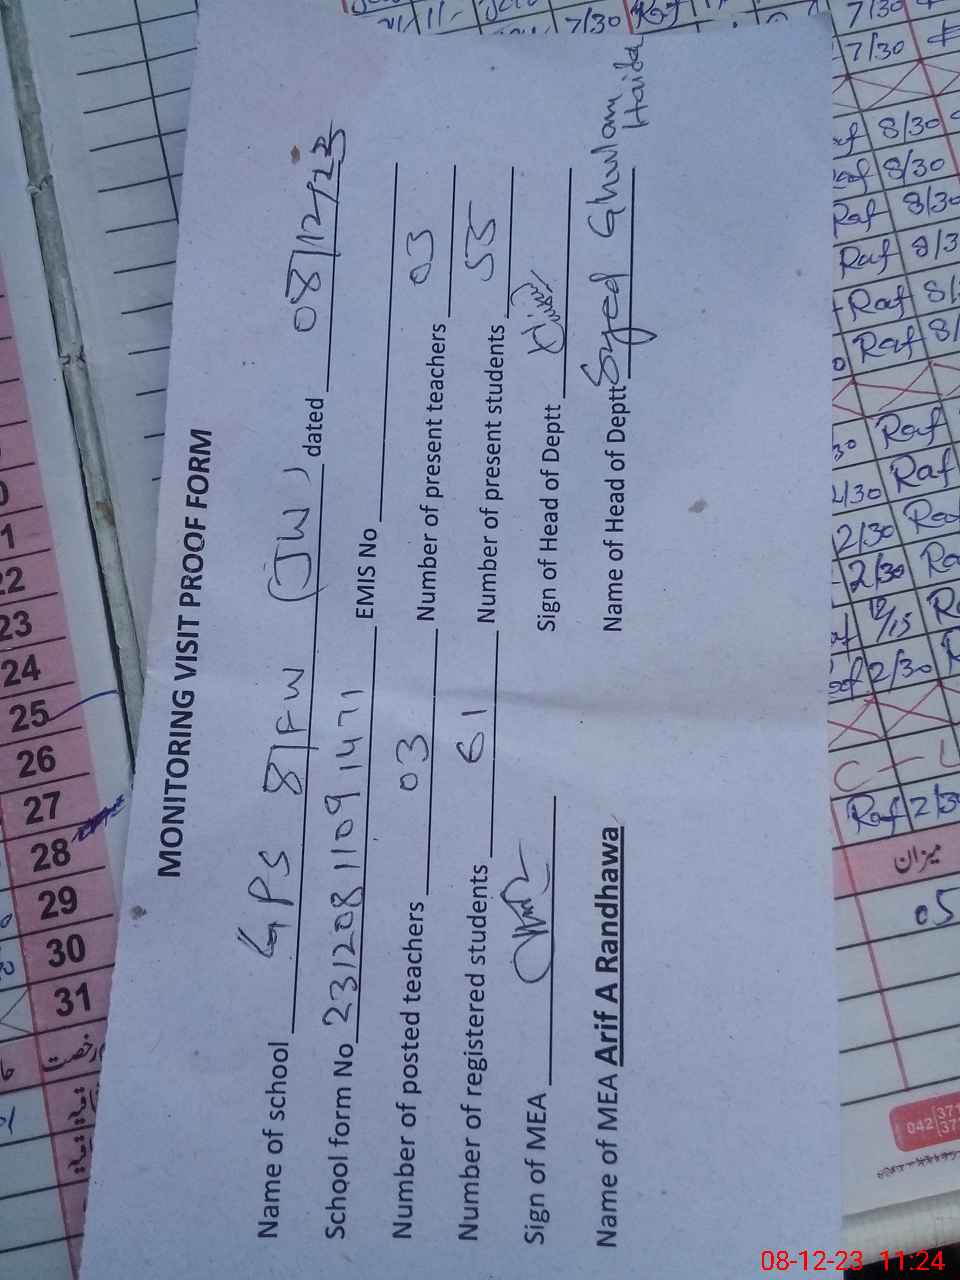 MONITORING VISIT PROOF FORM
Name of school GPS 8/FW (JW) dated 08/12/23
School form No 23120811091471 EMIS No
Number of posted teachers 03 Number of present teachers 03
Number of registered students 61 Number of present students 55
Sign of MEA Sign of Head of Deptt
Name of MEA Arif A Randhawa Name of Head of Deptt Syed Ghulam Haider
22
23
24
25
26
27
28
29
30
31
7/30
7/30
8/30
8/30
Raf 8/30
Raf
Raf
Raf
Raf
Raf
2/30
2/30
12/15
2/30
C - L
Raf 2/30
میزان
05
042
08-12-23 11:24